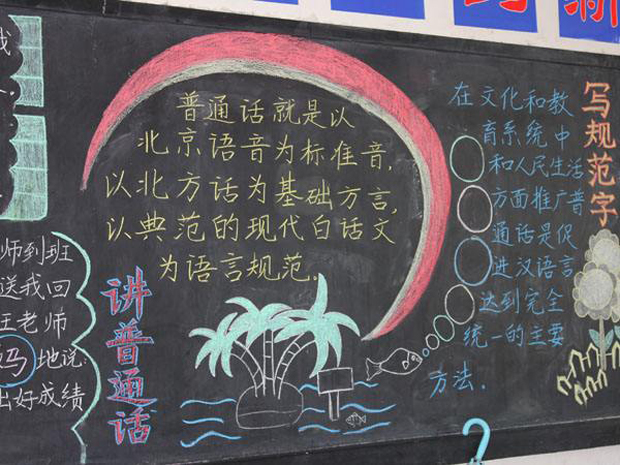 新
我
师到班
送我回
王老师
妈地说:
出好成绩
普通话就是以
北京语音为标准音,
以北方话为基础方言,
以典范的现代白话文
为语言规范。
讲普通话
在文化和教
育系统中
和人民生活
方面推广普
通话是促
进汉语言
达到完全
统一的主要
方法.
写规范字